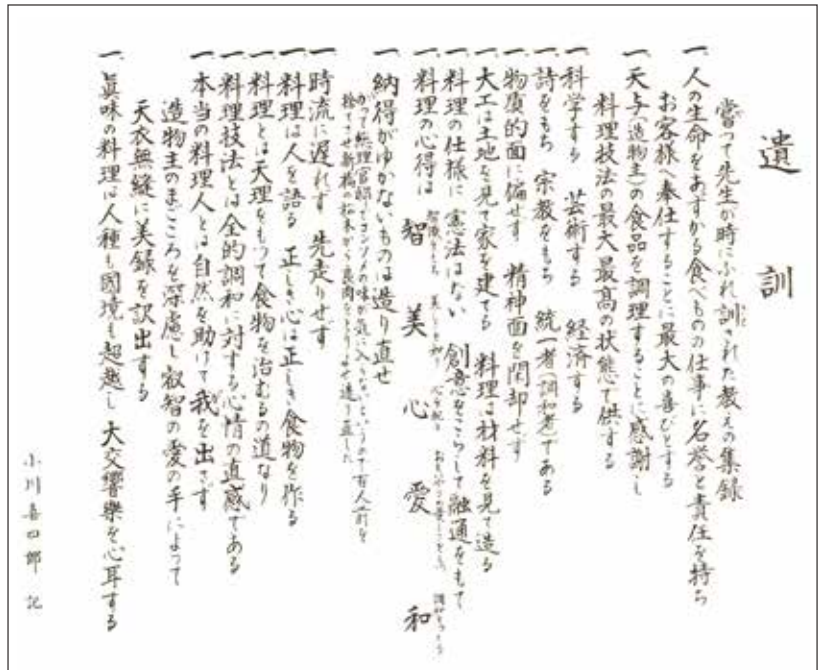 遺訓
嘗つて先生が時にふれ訓された教えの集録
一、人の生命をあずかる食べものの仕事に名誉と責任を持ち
お客様へ奉仕することに最大の喜びとする
一、天与(造物主)の食品を調理することに感謝し
料理技法の最大最高の状態で供する
一、科学する 芸術する 経済する
一、詩をもち 宗教をもち 統一者(調和者)である
一、物質的面に偏せず 精神面を閑却せず
一、大工は土地を見て家を建てる 料理は材料を見て造る
一、料理の仕様に 憲法はない 創意をこらして融通をもて
一、料理の心得は 智 美 心 愛 和
一、納得がゆかないものは造り直せ
かつて総理官邸でコンソメの味が気に入らないというので百人前を
捨てさせ新橋の から 肉をとりよせ造り直した
一、時流に遅れず 先走りせず
一、料理は人を語る 正しき心は正しき食物を作る
一、料理とは天理をもつて食物を治むるの道なり
一、料理技法とは全的調和に対する心情の直感である
一、本当の料理人とは自然を助けて我を出さず
造物主のまごころを深慮し叡智の愛の手によって
天衣無縫に美録を訳出する
一、真味の料理は人種も國境も超越し 大交響楽を心耳する
小川喜四郎 記